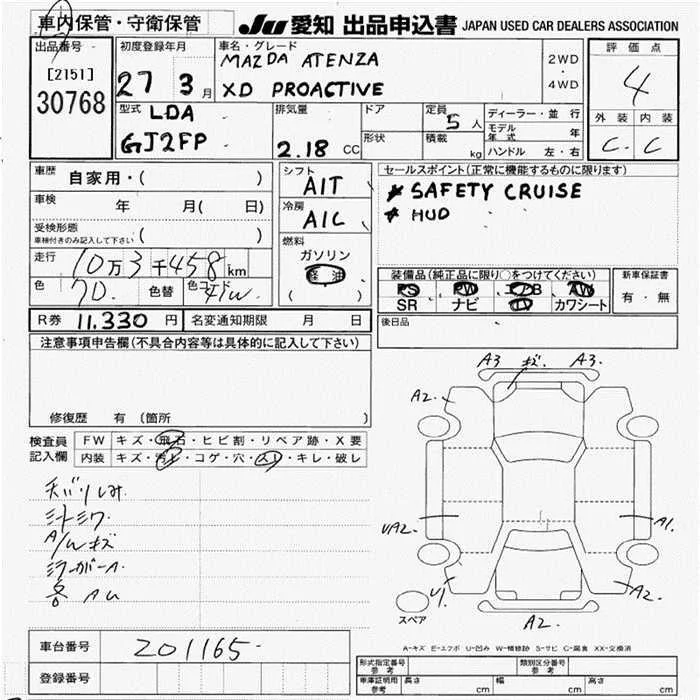 車内保管・守衛保管 JU 愛知 出品申込書 JAPAN USED CAR DEALERS ASSOCIATION
出品番号 [2151] 30768
初度登録年月 27 3月
車名・グレード MAZDA ATENZA
XD PROACTIVE
2WD・4WD
評価点 4
外装 内装
C C
型式 LDA
GJ2FP
排気量 2.18 CC
ドア
形状
定員 5人
積載 kg
ディーラー・並行
モデル年式 年
ハンドル 左・右
車歴 自家用・( )
車検 年 月( 日)
受検形態
車検付きのみ記入して下さい ( )
走行 10万3千458km
色 色替 色コード 41W
シフト A/T
冷房 A/C
燃料
ガソリン
軽油
( )
セールスポイント(正常に機能するものに限ります)
* SAFETY CRUISE
* HUD
装備品(純正品に限り○をつけてください)
PS PW エアB AW
SR ナビ TV カワシート
新車保証書
有・無
R券 11,330円 名変通知期限 月 日
後日品
注意事項申告欄(不具合内容等は具体的に記入して下さい)
修復歴 有 (箇所 )
検査員記入欄
FW キズ・飛石・ヒビ割・リペア跡・X要
内装 キズ・汚レ・コゲ・穴・スレ・キレ・破レ
シートシワ
A/Wキズ
A3 キズ. A3.
A2.
UA2. A1.
U1. A2.
A2.
スペア
A-キズ E-エクボ U-凹み W-補修跡 S-サビ C-腐食 XX-交換済
車台番号 201165
登録番号
形式指定番号 参考
類別区分番号 参考
車庫証明用 参考 長さ cm 幅 cm 高さ cm